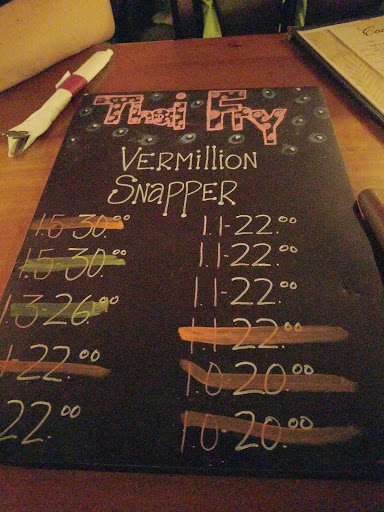 Thai Fry
VERMILLION
SNAPPER
1.5-30.00 1.1-22.00
1.5-30.00 1.1-22.00
1.3-26.00 1.1-22.00
1-22.00 1.1-22.00
22.00 1.0-20.00
1.0-20.00